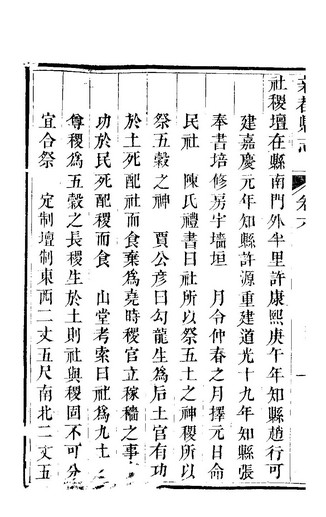 新都縣志 卷六 一
社稷壇在縣南門外半里許康熙庚午年知縣趙行可
建嘉慶元年知縣許源重建道光十九年知縣張
奉書培修房宇墻垣 月令仲春之月擇元日命
民社 陳氏禮書曰社所以祭五土之神稷所以
祭五穀之神 賈公彥曰勾龍生為后土官有功
於土死配社而食棄為堯時稷官立稼穡之事有
功於民死配稷而食 山堂考索曰社為九土之
尊稷為五穀之長稷生於土則社與稷固不可分
宜合祭 定制壇制東西二丈五尺南北二丈五